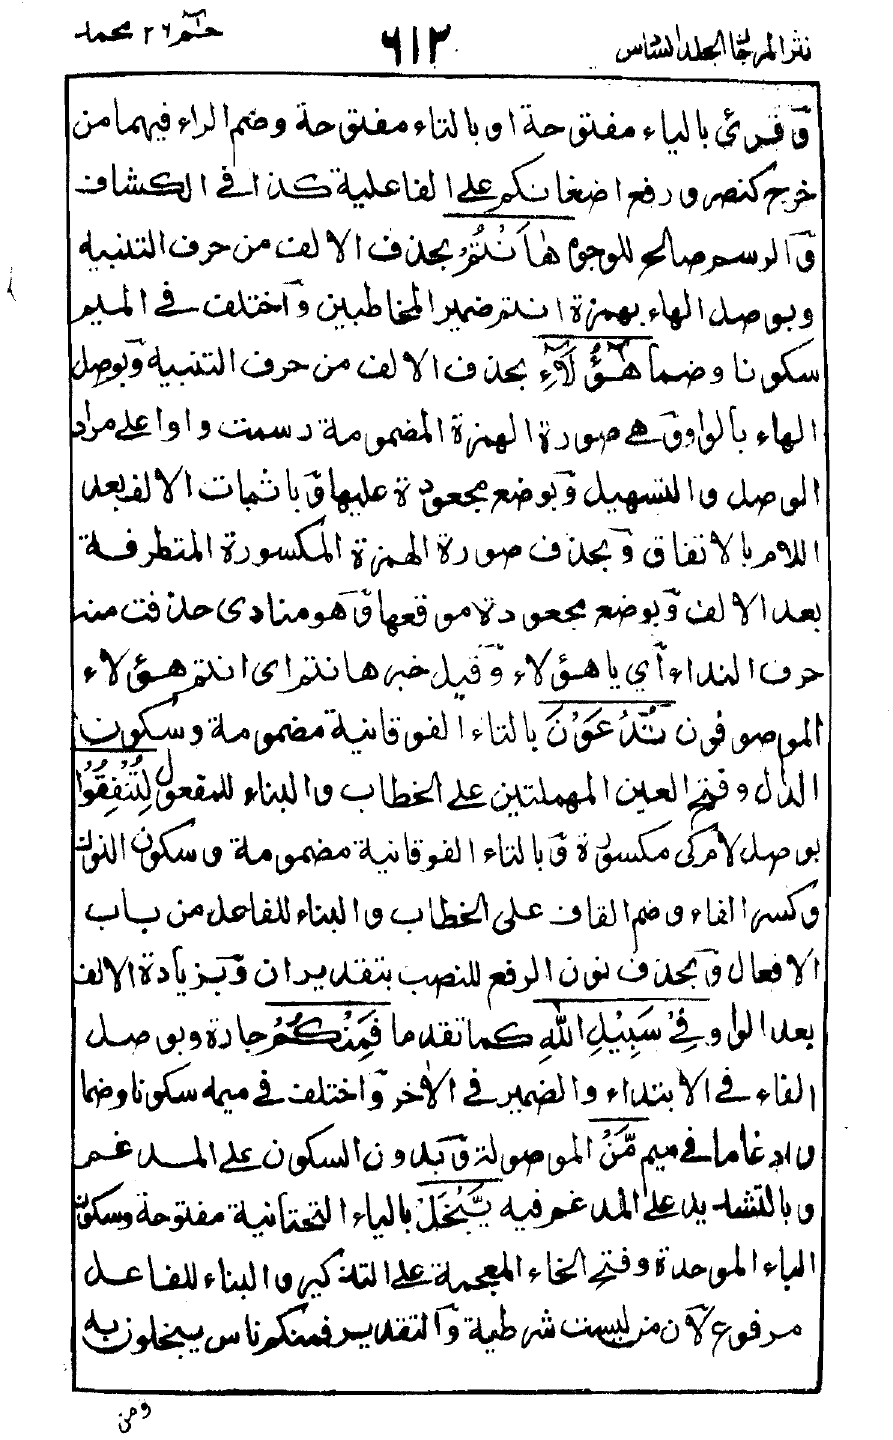 نثر المرجان الجلد السادس ٦١٢ حٰمٓ ٢٦ محمد
وقرئ بالياء مفتوحة او بالتاء مفتوحة وضم الراء فيهما من
خرج كنصر ورفع اضغانكم على الفاعلية كذا في الكشاف
والرسم صالح للوجوه هٰاَنْتُمْ بحذف الالف من حرف التنبيه
وبوصل الهاء بهمزة انتم ضمير المخاطبين واختلف في الميم
سكونا وضما هٰٓؤُلَآءِ بحذف الالف من حرف التنبيه وبوصل
الهاء بالواو وهي صورة الهمزة المضمومة رسمت واوا على مراد
الوصل والتسهيل وبوضع مجعودة عليها وباثبات الالف بعد
اللام بالاتفاق وبحذف صورة الهمزة المكسورة المتطرفة
بعد الالف وبوضع مجعودة موقعها وهو منادى حذفت منه
حرف النداء أي يا هؤلاء وقيل خبر ها نتم اى انتم هؤلاء
الموصوفون تُدْعَوْنَ بالتاء الفوقانية مضمومة وسكون
الدال وفتح العين المهملتين على الخطاب والبناء للمفعول لِتُنْفِقُوْا
بوصل لام كى مكسورة وبالتاء الفوقانية مضمومة وسكون النون
وكسر الفاء وضم القاف على الخطاب والبناء للفاعل من باب
الافعال وبحذف نون الرفع للنصب بتقدير ان وبزيادة الالف
بعد الواو فِيْ سَبِيْلِ اللّٰهِ كما تقدما فَمِنْكُمْ جارة وبوصل
الفاء في الابتداء والضمير في الأخر واختلف في ميمه سكونا وضما
وادغاما في ميم مَّنْ الموصولة وبدون السكون على المدغم
وبالتشديد على المدغم فيه يَّبْخَلُ بالياء التحتانية مفتوحة وسكون
الباء الموحدة وفتح الخاء المعجمة على التذكير والبناء للفاعل
مرفوع لان من ليست شرطية والتقدير فمنكم ناس يبخلون به
ومن